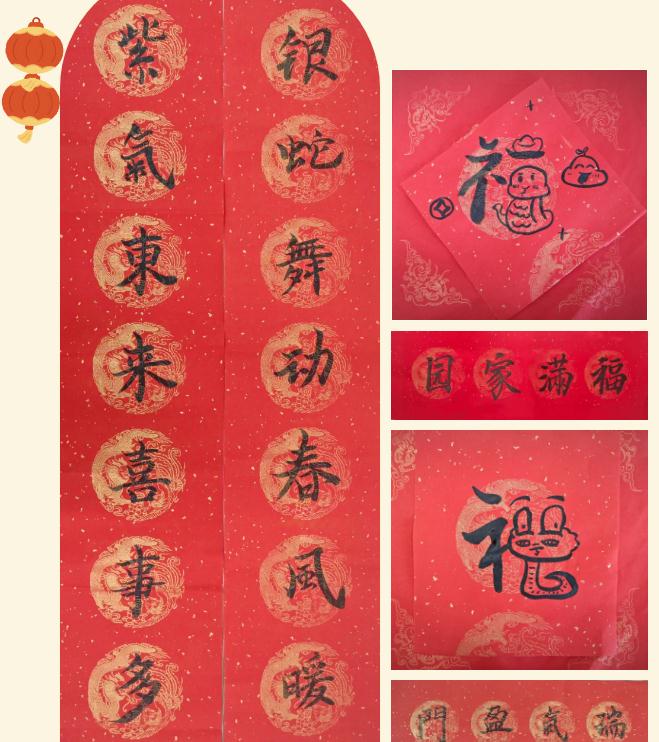 银蛇舞动春風暖
紫氣東来喜事多
福
福滿家园
福
瑞氣盈門